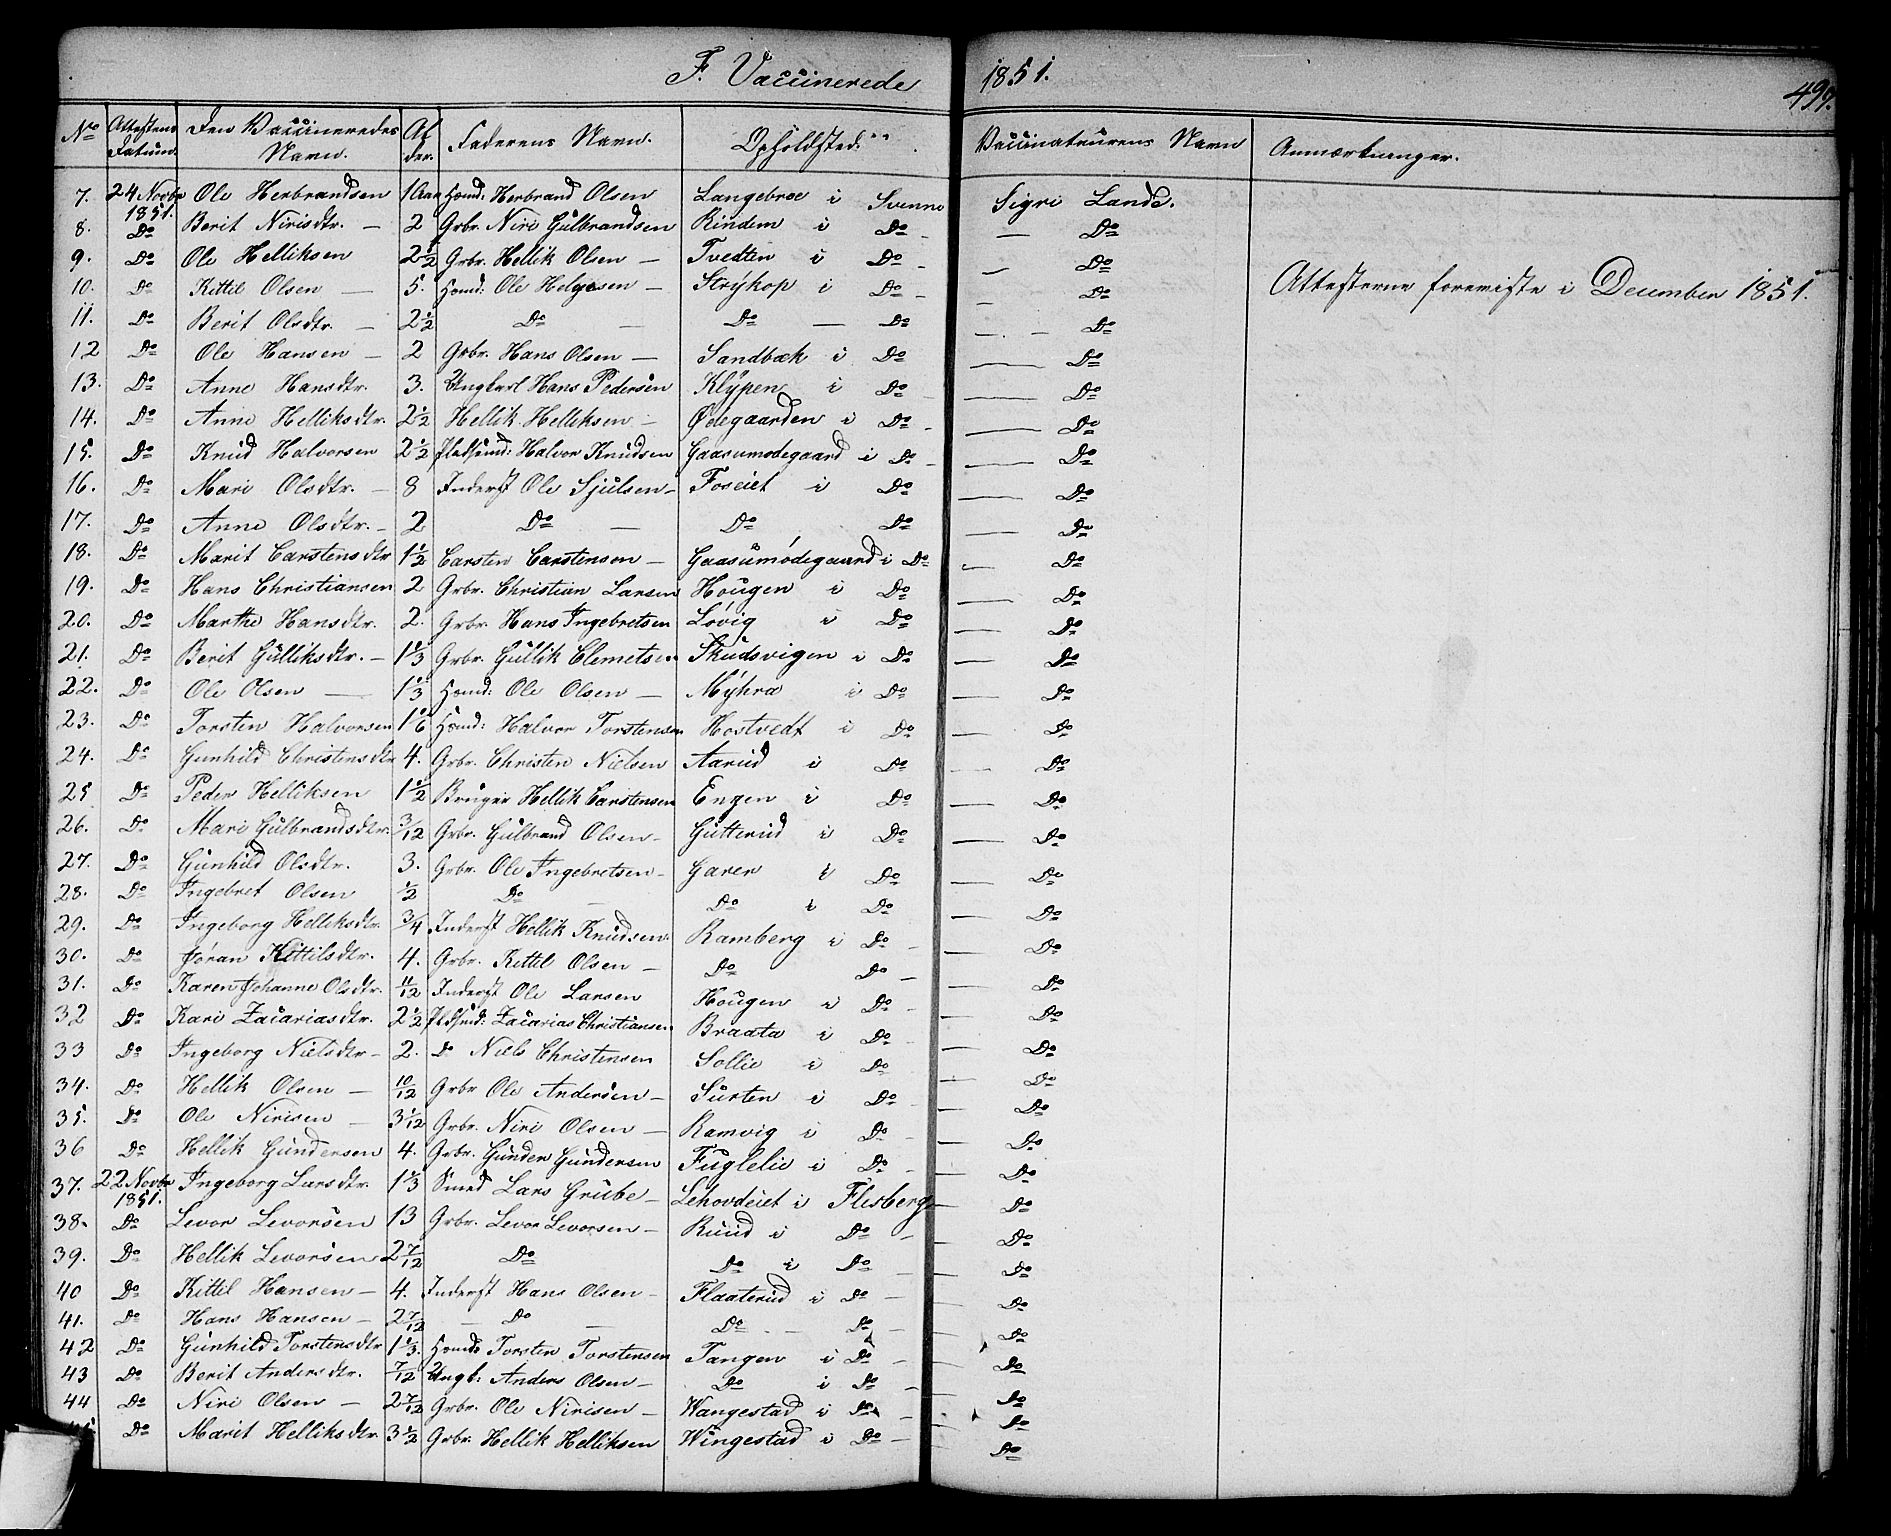 F. Vaccinerede 1851. 499.
No Attestens Datum. Den Vaccineredes Navn. Alder. Faderens Navn. Opholdsted. Vaccinateurens Navn Anmærkninger.
7. 24 Novbr 1851. Ole Herbrandsen 1 Aar Hdmd: Herbrand Olsen Langebroe i Svenne Sigri Lande.
8. Do Berit Nirisdtr. — 2 Grbr. Niri Gulbrandsen Rindem i Do — Do
9. Do Ole Helliksen 2 1/2 Grbr. Hellik Olsen — Tvedten i Do — Do
10. Do Kittil Olsen — 5. Hdmd: Ole Helgesen — Strykop i Do — Do
Attesterne foreviste i December 1851.
11. Do Berit Olsdtr. — 2 1/2 Do — Do — Do — Do
12 Do Ole Hansen — 2 Grbr. Hans Olsen — Sandbæk i Do — Do
13. Do Anne Hansdtr. 3. Ungkarl Hans Pedersen Klypen i Do — Do
14. Do Anne Helliksdtr. 2 1/2 Hellik Helliksen — Ødegaarden i Do — Do
15. Do Knud Halvorsen 2 1/2 Pladsmd: Halvor Knudsen Gaasumødegaard i Do — Do
16. Do Mari Olsdtr. — 8 Inderst Ole Sjulsen — Foseiet i Do — Do
17. Do Anne Olsdtr. — 2 Do — Do Do — Do
18. Do Marit Carstensdtr 1 1/2 Carsten Carstensen — Gaasumødegaard i Do — Do
19. Do Hans Christiansen 2 Grbr. Christian Larsen Hougen i Do — Do
20. Do Marthe Hansdtr. 2. Grbr. Hans Ingebretsen Løvig i Do — Do
21. Do Berit Gulliksdtr. — 1 1/3 Grbr. Gullik Clemetsen Skudsvigen i Do — Do
22. Do Ole Olsen — 1 1/3 Hdmd: Ole Olsen — Myhra i Do — Do
23. Do Torsten Halvorsen 1 1/6 Hdmd: Halvor Torstensen Hostvedt i Do — Do
24. Do Gunhild Christensdtr 4. Grbr. Christen Nielsen Aarud i Do — Do
25 Do Peder Helliksen 1 1/2 Bruger Hellik Carstensen Engen i Do — Do
26. Do Mari Gulbrandsdtr. 3/12 Grbr. Gulbrand Olsen — Gutterud i Do — Do
27. Do Gunhild Olsdtr. 3. Grbr. Ole Ingebretsen — Garen i Do — Do
28. Do Ingebret Olsen 1/2 Do — Do i Do — Do
29. Do Ingeborg Helliksdtr. 3/4 Inderst Hellik Knudsen. Ramberg i Do — Do
30. Do Jøran Kittilsdtr. 4. Grbr. Kittel Olsen — Do Do — Do
31. Do Karen Johanne Olsdtr. 11/12 Inderst Ole Larsen Hougen i Do — Do
32 Do Kari Zacariasdtr. 2 1/2 Pladsmd: Zacarias Christiansen Braata i Do — Do
33 Do Ingeborg Nielsdtr — 2. Do Niels Christensen Sollie i Do — Do
34. Do Hellik Olsen — 10/12 Grbr Ole Andersen — Susten i Do — Do
35. Do Ole Nirisen — 3 1/12 Grbr. Niri Olsen — Ramvig i Do — Do
36 Do Hellik Gundersen 4. Grbr. Gunder Gundersen Fuglelie i Do — Do
37. 22 Novbr 1851. Ingeborg Larsdtr. 1 1/3 Smed Lars Grube — Lehovdeiet i Flesberg — Do
38. Do Levor Levorsen 13 Grbr. Levor Levorsen — Ruud i Do — Do
39. Do Hellik Levorsen 2 7/12 Do Do i Do — Do
40 Do Kittil Hansen — 4. Inderst Hans Olsen — Flaaterud i Do — Do
41. Do Hans Hansen — 2 7/12 — Do — Do — Do — Do
42 Do Gunhild Torstensdtr 1 1/3. Hdmd: Torsten Torstensen Tangen i Do — Do
43 Do Berit Andersdtr. 7/12 Ungk: Anders Olsen — Do i Do — Do
44 Do Niri Olsen — 2 7/12 Grbr. Ole Nirisen — Wangestad i Do — Do
Do Marit Helliksdtr. 3 1/2 Grbr. Hellik Helliksen Wingestad i Do — Do